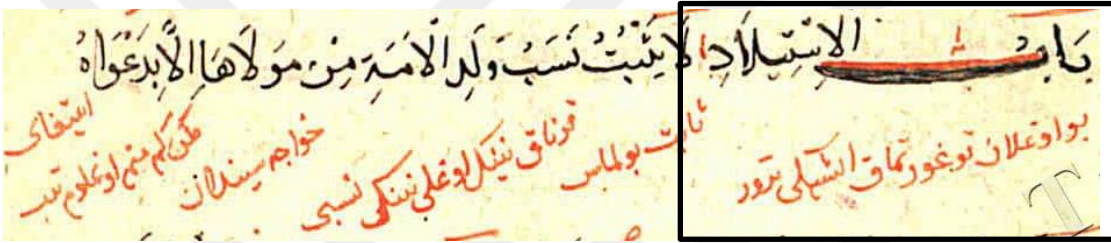 بَابُ الْاِسْتِيلَادِ لَا يَثْبُتُ نَسَبُ وَلَدِ الْاَمَةِ مِنْ مَوْلَاهَا اِلَّا بِدَعْوَاهُ
بو اوغلان توغورتماق اشیکلی تورور
ثابت بولماس
قرناق نینک اوغلی نینک نسبی
خواجه سیندان
مکن کم منم اوغلوم تیب
ایتغای